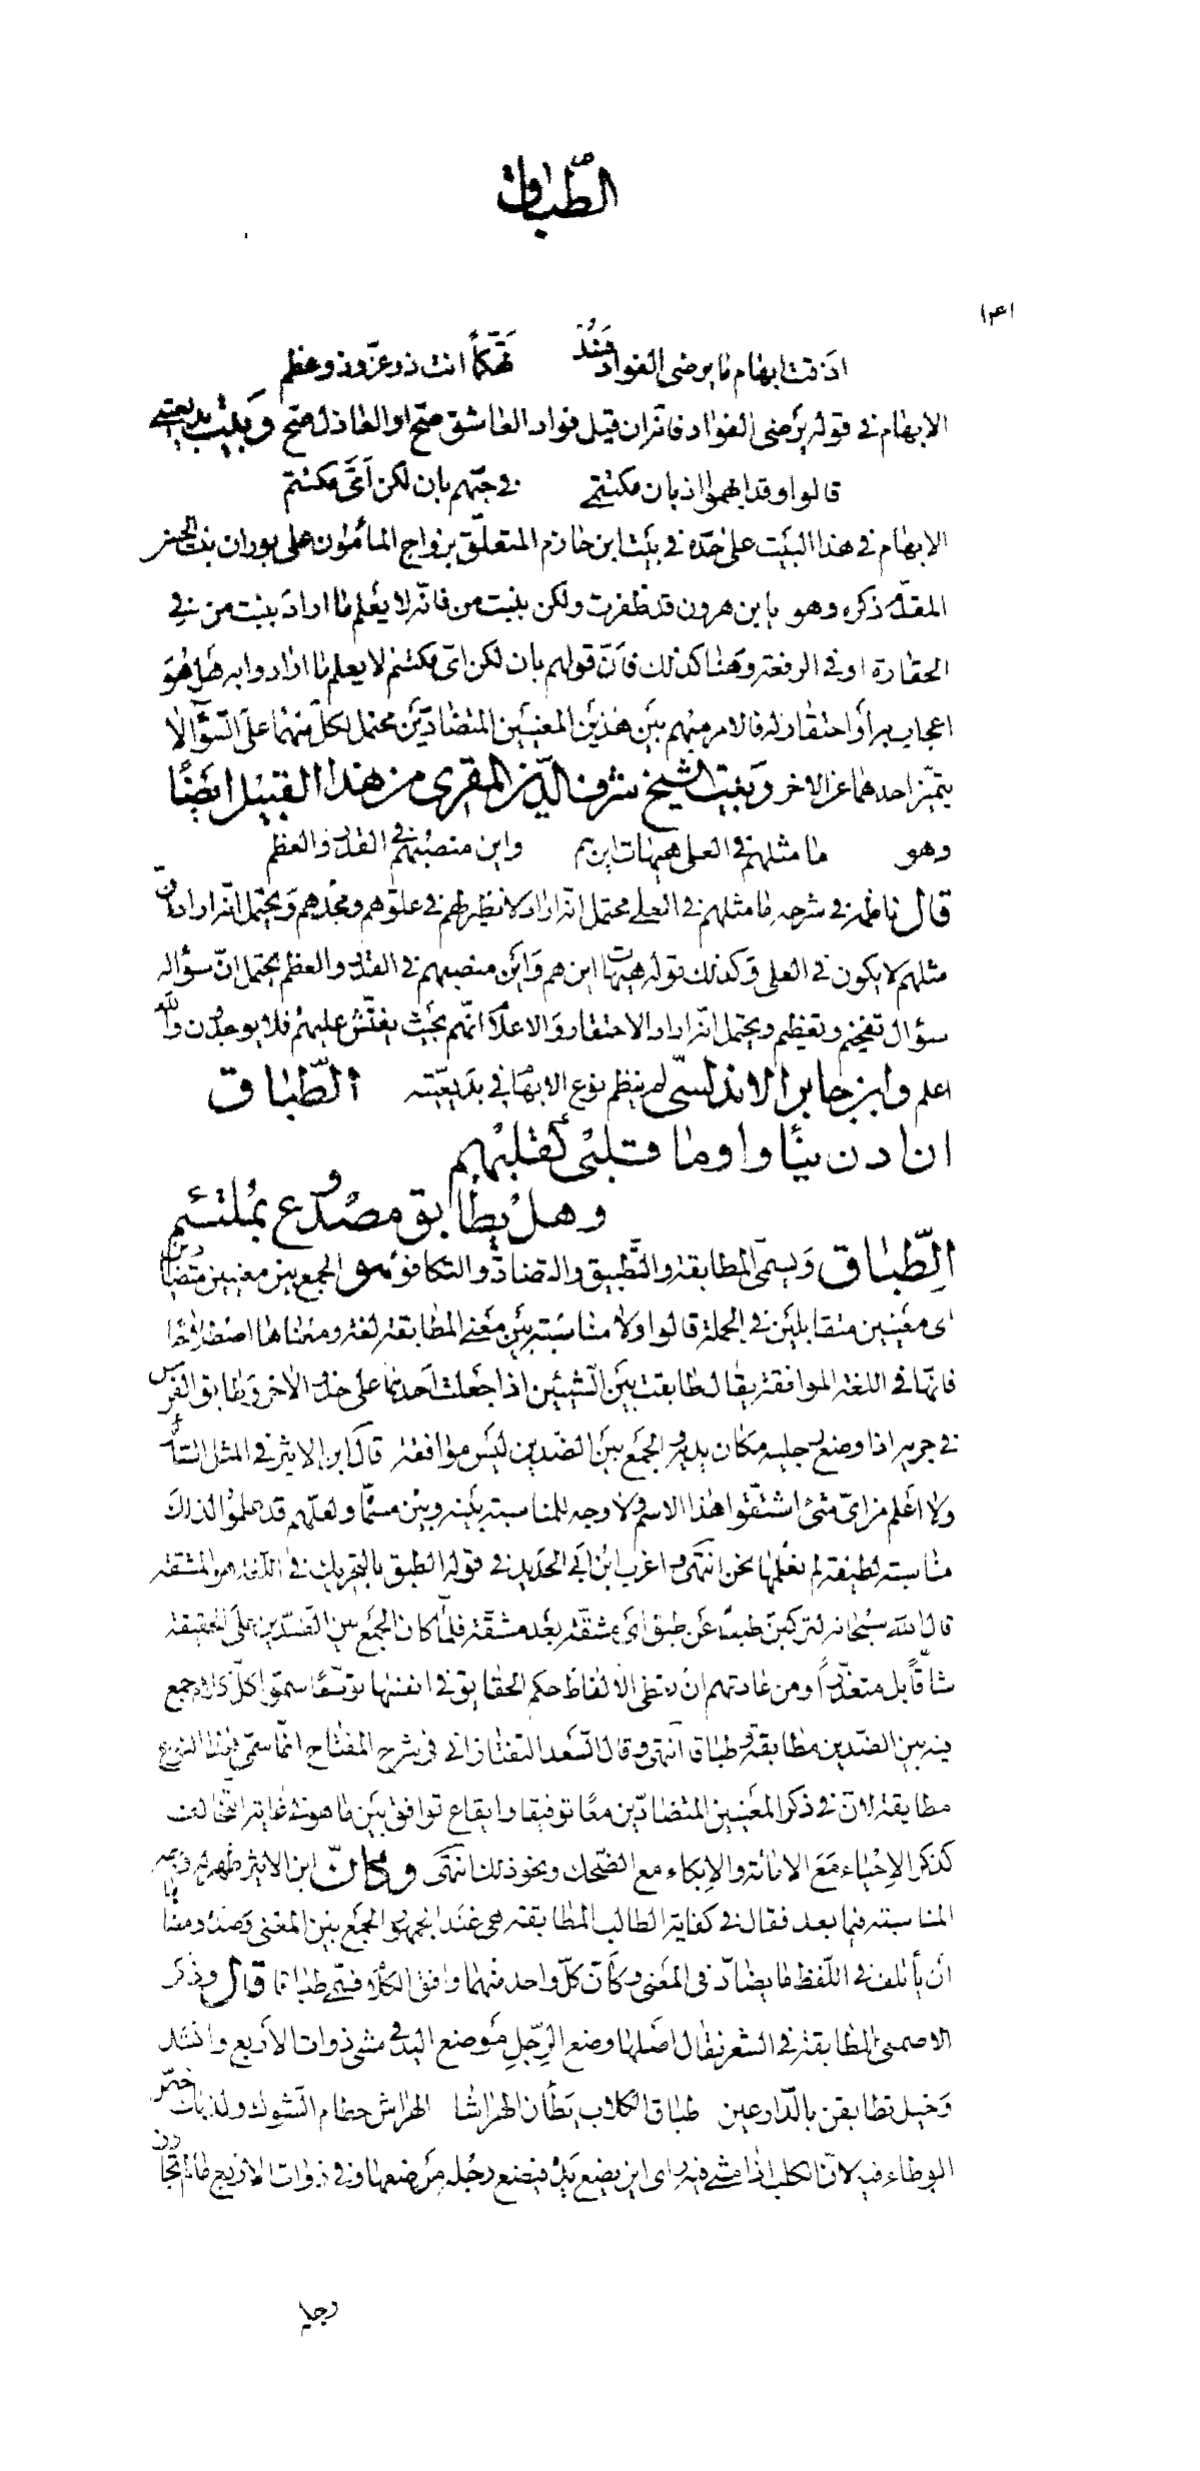 الطّباق
١٣١
اذ قت ابهام ما يرضى الفواد تهكّماً انت ذو عزّ وذو عظم
الابهام فى قوله يرضى الفواد فانه ان قيل فواد العاشق صحّ او العاذل صحّ وبيت بديعيته
قالوا وقد ابهموا اذ بان مكنتم فى حبّهم بان لكن اىّ مكنتم
الابهام فى هذا البيت على حدّه فى بيت ابن حازم المتعلّق بزواج المأمون على بوران بنت الحسن
المقدّم ذكره وهو يا بن هرون قد ظفرت ولكن ببنت من فانّه لا يعلم ما اراد ببنت من فى
الحقارة او فى الرفعة وهنا كذلك فانّ قولهم بان لكن اىّ مكتتم لا يعلم ما ارادوا به هل هو
اعجاب به أو احتقار له فالامر مبهم بين هذين المعنيين المتضادّين محتمل لكلّ منهما على السّوآ لا
يتميّز احدهما عن الاخر وبيت الشيخ شرف الدّين المقرى من هذا القبيل ايضًا
وهو ما مثلهم فى العلى هيهات اين هم واين منصبهم فى القدر والعظم
قال ناظمه فى شرحه ما مثلهم فى العلى محتمل انّه اراد لا نظير لهم فى علوّهم ومجدهم ويحتمل انّه اراد انّ
مثلهم لا يكون فى العلى وكذلك قوله هيهات اين هم واين منصبهم فى القدر والعظم يحتمل انّ سؤاله
سؤال تفخيم وتعظيم ويحتمل انّه اراد الاحتقار والاعلام انّهم بحيث يفتّش عليهم فلا يوجدون والله
اعلم وابن جابر الاندلسىّ لم ينظم نوع الابهام فى بديعيّته الطّباق
ان ادن ينأوا وما قلبى كقلبهم
وهل يطابق مصدوع بملتئم
الطّباق ويسمّى المطابقة والتّطبيق والتضادّ والتكافؤ هو الجمع بين معنيين متضادّين
اى معنيين متقابلين فى الجملة قالوا ولا مناسبة بين معنى المطابقة لغة ومعناها اصطلاحًا
فانّها فى اللغة الموافقة يقال طابقت بين الشيئين اذا جعلت احدهما على حذو الاخر وطابق الفرس
فى جريه اذا وضع رجليه مكان يديه والجمع بين الضدين ليس موافقة قال ابن الاثير فى المثل السّائر
ولا اعلم من اىّ شئ اشتقّوا هذا الاسم ولا وجه للمناسبة بينه وبين مسمّاه ولعلّهم قد علموا لذلك
مناسبة لطيفة لم نعلمها نحن انتهى واغرب ابن ابى الحديد فى قوله الطبق بالتحريك فى اللغة هو المشقة
قال الله سبحانه لتركبنّ طبقًا عن طبق اى مشقّة بعد مشقّة فلمّا كان الجمع بين الضّدّين على الحقيقة
شاقًّا بل متعذّرًا ومن عادتهم ان تعطى الالفاظ حكم الحقايق فى انفسها توسّعًا سموّا كلّ كلام جمع
فيه بين الضّدين مطابقة وطباقا انتهى وقال السّعد التفتازانى فى شرح المفتاح انّما سمّى هذا النوع
مطابقة لانّ فى ذكر المعنيين المتضادّين معًا توفيقا وايقاع توافق بين ما هو فى غاية التّخالف
كذكر الاحياء مع الاماتة والابكاء مع الضّحك ونحو ذلك انتهى وكانّ ابن الاثير ظهر له وجه
المناسبة فيما بعد فقال فى كفاية الطالب المطابقة هى عند الجمهور الجمع بين المعنى وضدّه ومعناها
ان يأتلف فى اللّفظ ما يضادّ فى المعنى وكأنّ كلّ واحد منهما وافق الكلام فسمّى طباقا قال وذكر
الاصمعى المطابقة فى الشّعر فقال اصلها وضع الرّجل موضع اليد فى مشى ذوات الاربع وانشد
وخيل تطابقن بالدّارعين طباق الكلاب يطأن الهراشا الهراش حطام الشّوك ولذا خصّ
الوطاء فيه لانّ الكلب اذا مشى فيه راى اين يضع يده فيضع رجله موضعها وفى ذوات الاربع ما اذا
رجله